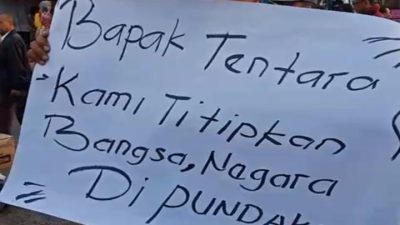 Bapak Tentara
Kami Titipkan
Bangsa, Nagara
Di PUNDAK